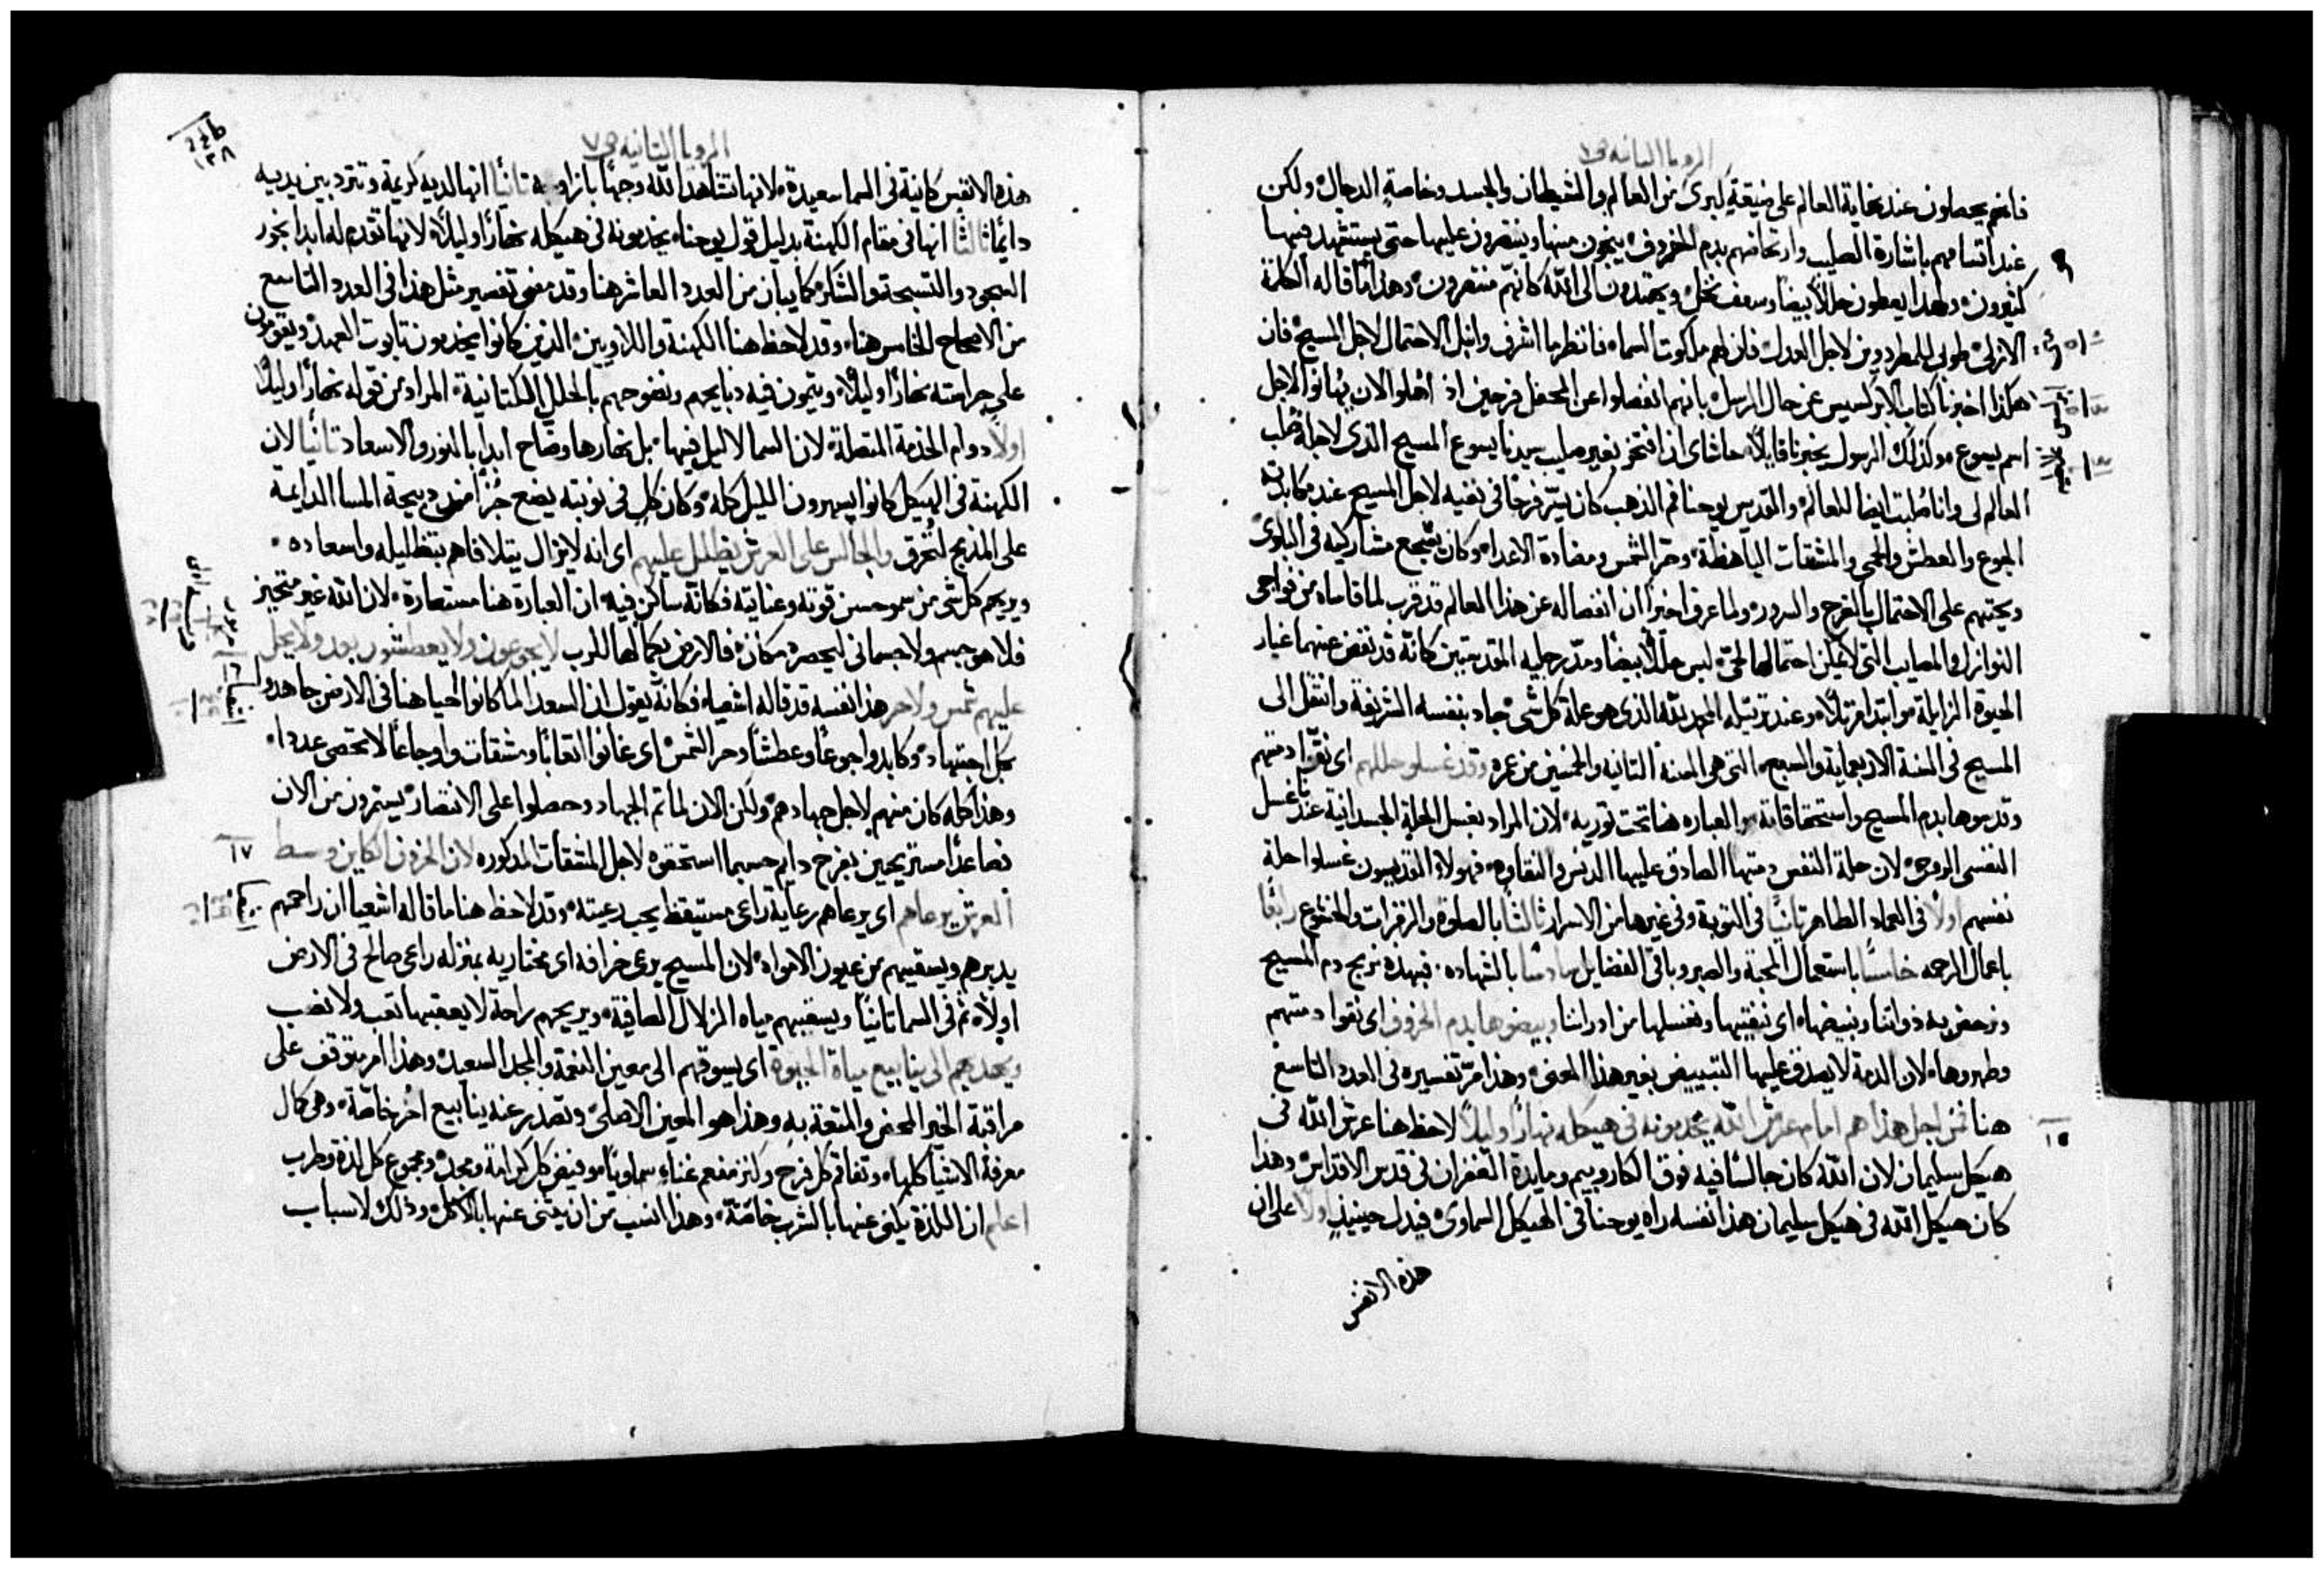 الرويا الثانيه ص٧
فانهم يحصلون عند نهاية العالم على ضيقة كبرى من العالم والشيطان والجسد وخاصة الدجال ولكن
عند اتسامهم باشارة الصليب وارتحاضهم بدم الخروف ينجون منها وينتصرون عليها حتى يستشهد فيها
كثيرون ولهذا يعطون حللاً بيضاً وسعف نخل ويهتدون الى الله كانهم منتصرون وهذا ما قاله الكلمة
الازلى طوبى للمطرودين لاجل العدل فان لهم ملكوت السماء فانظر ما اشرف وانبل الاحتمال لاجل المسيح فان
هكذا اخبرنا كتاب الابركسيس عن حال الرسل بانهم انفصلوا عن المحفل فرحين اذ اهلوا الان يهانوا لاجل
اسم يسوع وكذلك الرسول يخبرنا قايلاً حاشاى ان افتخر بغير صليب سيدنا يسوع المسيح الذى لاجله صُلب
العالم لى وانا صُلبت ايضا للعالم والقديس يوحنا فم الذهب كان يسرّ فرحًا فى نفيه لاجل المسيح عند مكابدته
الجوع والعطش والحمى والمشقات الباهظة وحرّ الشمس ومضادة الاعداء وكان يشجع مشاركيه فى البلوى
ويحثهم على الاحتمال بالفرح والسرور ولما عرف اخيرًا ان انفصاله عن هذا العالم قد قرب لما قاساه من فواجى
النوازل والمصايب التى لا يمكن احتمالها لحيّ لبس حللاً بيضًا ومدّ رجليه المقدستين كانّه قد نفض عنهما غبار
الحيوة الزايلة وابتدا مرتلاً وعند ترتيله المجد لله الذى هو علة كل شى جاد بنفسه الشريفة وانتقل الى
المسيح فى السنة الاربعماية والسبع التى هى السنة الثانيه والخمسين من عمره وقد غسلوا حللهم اى نقّوا ذمتهم
وقدسوها بدم المسيح واستحقاقاته والعباره هنا تحت توريه لان المراد بغسل الحلة الجسدانية عندنا غسل
النفسى الروحى لان حلة النفس ذمتها الصادق عليها الدنس والنقاوه فهولاء القديسون غسلوا حلة
نفسهم اولاً فى العماد الطاهر ثانيًا فى التوبة وفى غيرها من الاسرار ثالثًا بالصلوة والزفرات والخشوع رابعًا
باعمال الرحمه خامسًا باستعمال المحبة والصبر وباقى الفضايل سادسًا بالشهاده فبهذه نربح دم المسيح
ونرحض به ذواتنا ونبيضها اى ننقيها ونغسلها من ادراننا وبيضوها بدم الخروف اى نقوا ذمتهم
وطهروها لان الذمة لا يصدق عليها التبييض بغير هذا المعنى وهذا مرّ تفسيره فى العدد التاسع
هنا فمن اجل هذا هم امام عرش الله يخدمونه فى هيكله نهارًا وليلاً لاحظ هنا عرش الله فى
هيكل سليمان لان الله كان جالسًا فيه فوق الكاروبيم ومايدة الغفران فى قدس الاقداس وهذا
كان هيكل الله فى هيكل سليمان هذا نفسه راه يوحنا فى الهيكل السماوى فيدل حينيذٍ اولاً على ان
هذه الانفس
١٥
الرويا الثانيه ص٧
هذه الانفس كاينة فى السما سعيدة لانها تشاهد الله وجهًا بازا وجه ثانيًا انها لديه كريمة وتتردد بين يديه
دايمًا ثالثًا انها فى مقام الكهنة بدليل قول يوحنا يخدمونه فى هيكله نهارًا وليلاً لانها تقدم له ابدًا بخور
السجود والتسبحة والشكر كما يبان من العدد العاشر هنا وقد مضى تفسير مثل هذا فى العدد التاسع
من الاصحاح الخامس هنا وقد لاحظ هنا الكهنة واللاويين الذين كانوا يخدمون تابوت العهد ويقومون
على حراسته نهارًا وليلاً ويتمون فيه ذبايحهم ونضوحهم بالحلل الكتانية المراد من قوله نهارًا وليلاً
اولاً دوام الخدمة المتصلة لان السما لا ليل فيها بل نهارها وضاح ابدًا بالنور والاسعاد ثانيًا لان
الكهنة فى الهيكل كانوا يسهرون الليل كله وكان كل فى نوبته يضع جُزًا من ذبيحة المسا الدايمة
على المذبح لتُحرق والجالس على العرش يظلل عليهم اى انه لا يزال يتلافاهم بتظليله واسعاده
ويريحم كل شى من سمو حسن قوته وعنايته فكانّه ساكن فيه ان العبارة هنا مستعارة لان الله غير متحيز
فلا هو جسم ولا جسمانى ليحصره مكان فالارض بكمالها للرب لا يجوعون ولا يعطشون بعد ولا يحل
عليهم شمس ولا حر هذا نفسه قد قاله اشعيا فكانّه يقول ان السعدا لما كانوا احيا هنا فى الارض جاهدوا
بكل اجتهاد وكابدوا جوعًا وعطشًا وحر الشمس اى عانوا اتعابًا ومشقات واوجاعًا لا تحصى عددا
وهذا كله كان منهم لاجل جهادهم ولكن الان لما تم الجهاد وحصلوا على الانتصار يستمرون من الان
فصاعدًا مستريحين بفرح دايم حسبما استحقوه لاجل المشقات المذكوره لان الخروف الكاين وسط
العرش يرعاهم اى يرعاهم رعاية راعى مستيقظ يحب رعيته وقد لاحظ هنا ما قاله اشعيا ان راحمهم
يدبرهم ويسقيهم من عيون الامواه لان المسيح يرعى خرافه اى مختاريه بمنزله راعى صالح فى الارض
اولاً ثم فى السما ثانيًا ويسقيهم مياه الزلال الصافية ويريحهم راحة لا يعقبها تعب ولا نصب
ويهديهم الى ينابيع مياة الحيوة اى يسوقهم الى معين النعمة والمجد السعيده وهذا امر متوقف على
مراقبة الخير المحض والمتعة به وهذا هو المعين الاصلى وتصدر عنه ينابيع اخر خاصّة وهى كمال
معرفة الاشيا كلها وتفاقم كل فرح وكنز مفعم غناء سماويًا وفيض كل كرامة ومجد ومجموع كل لذة وطرب
اعلم ان اللذة يكنى عنها بالشرب خاصّة وهذا انسب من ان يكنى عنها بالاكل وذلك لاسباب
١٦
١٧
١٣٨